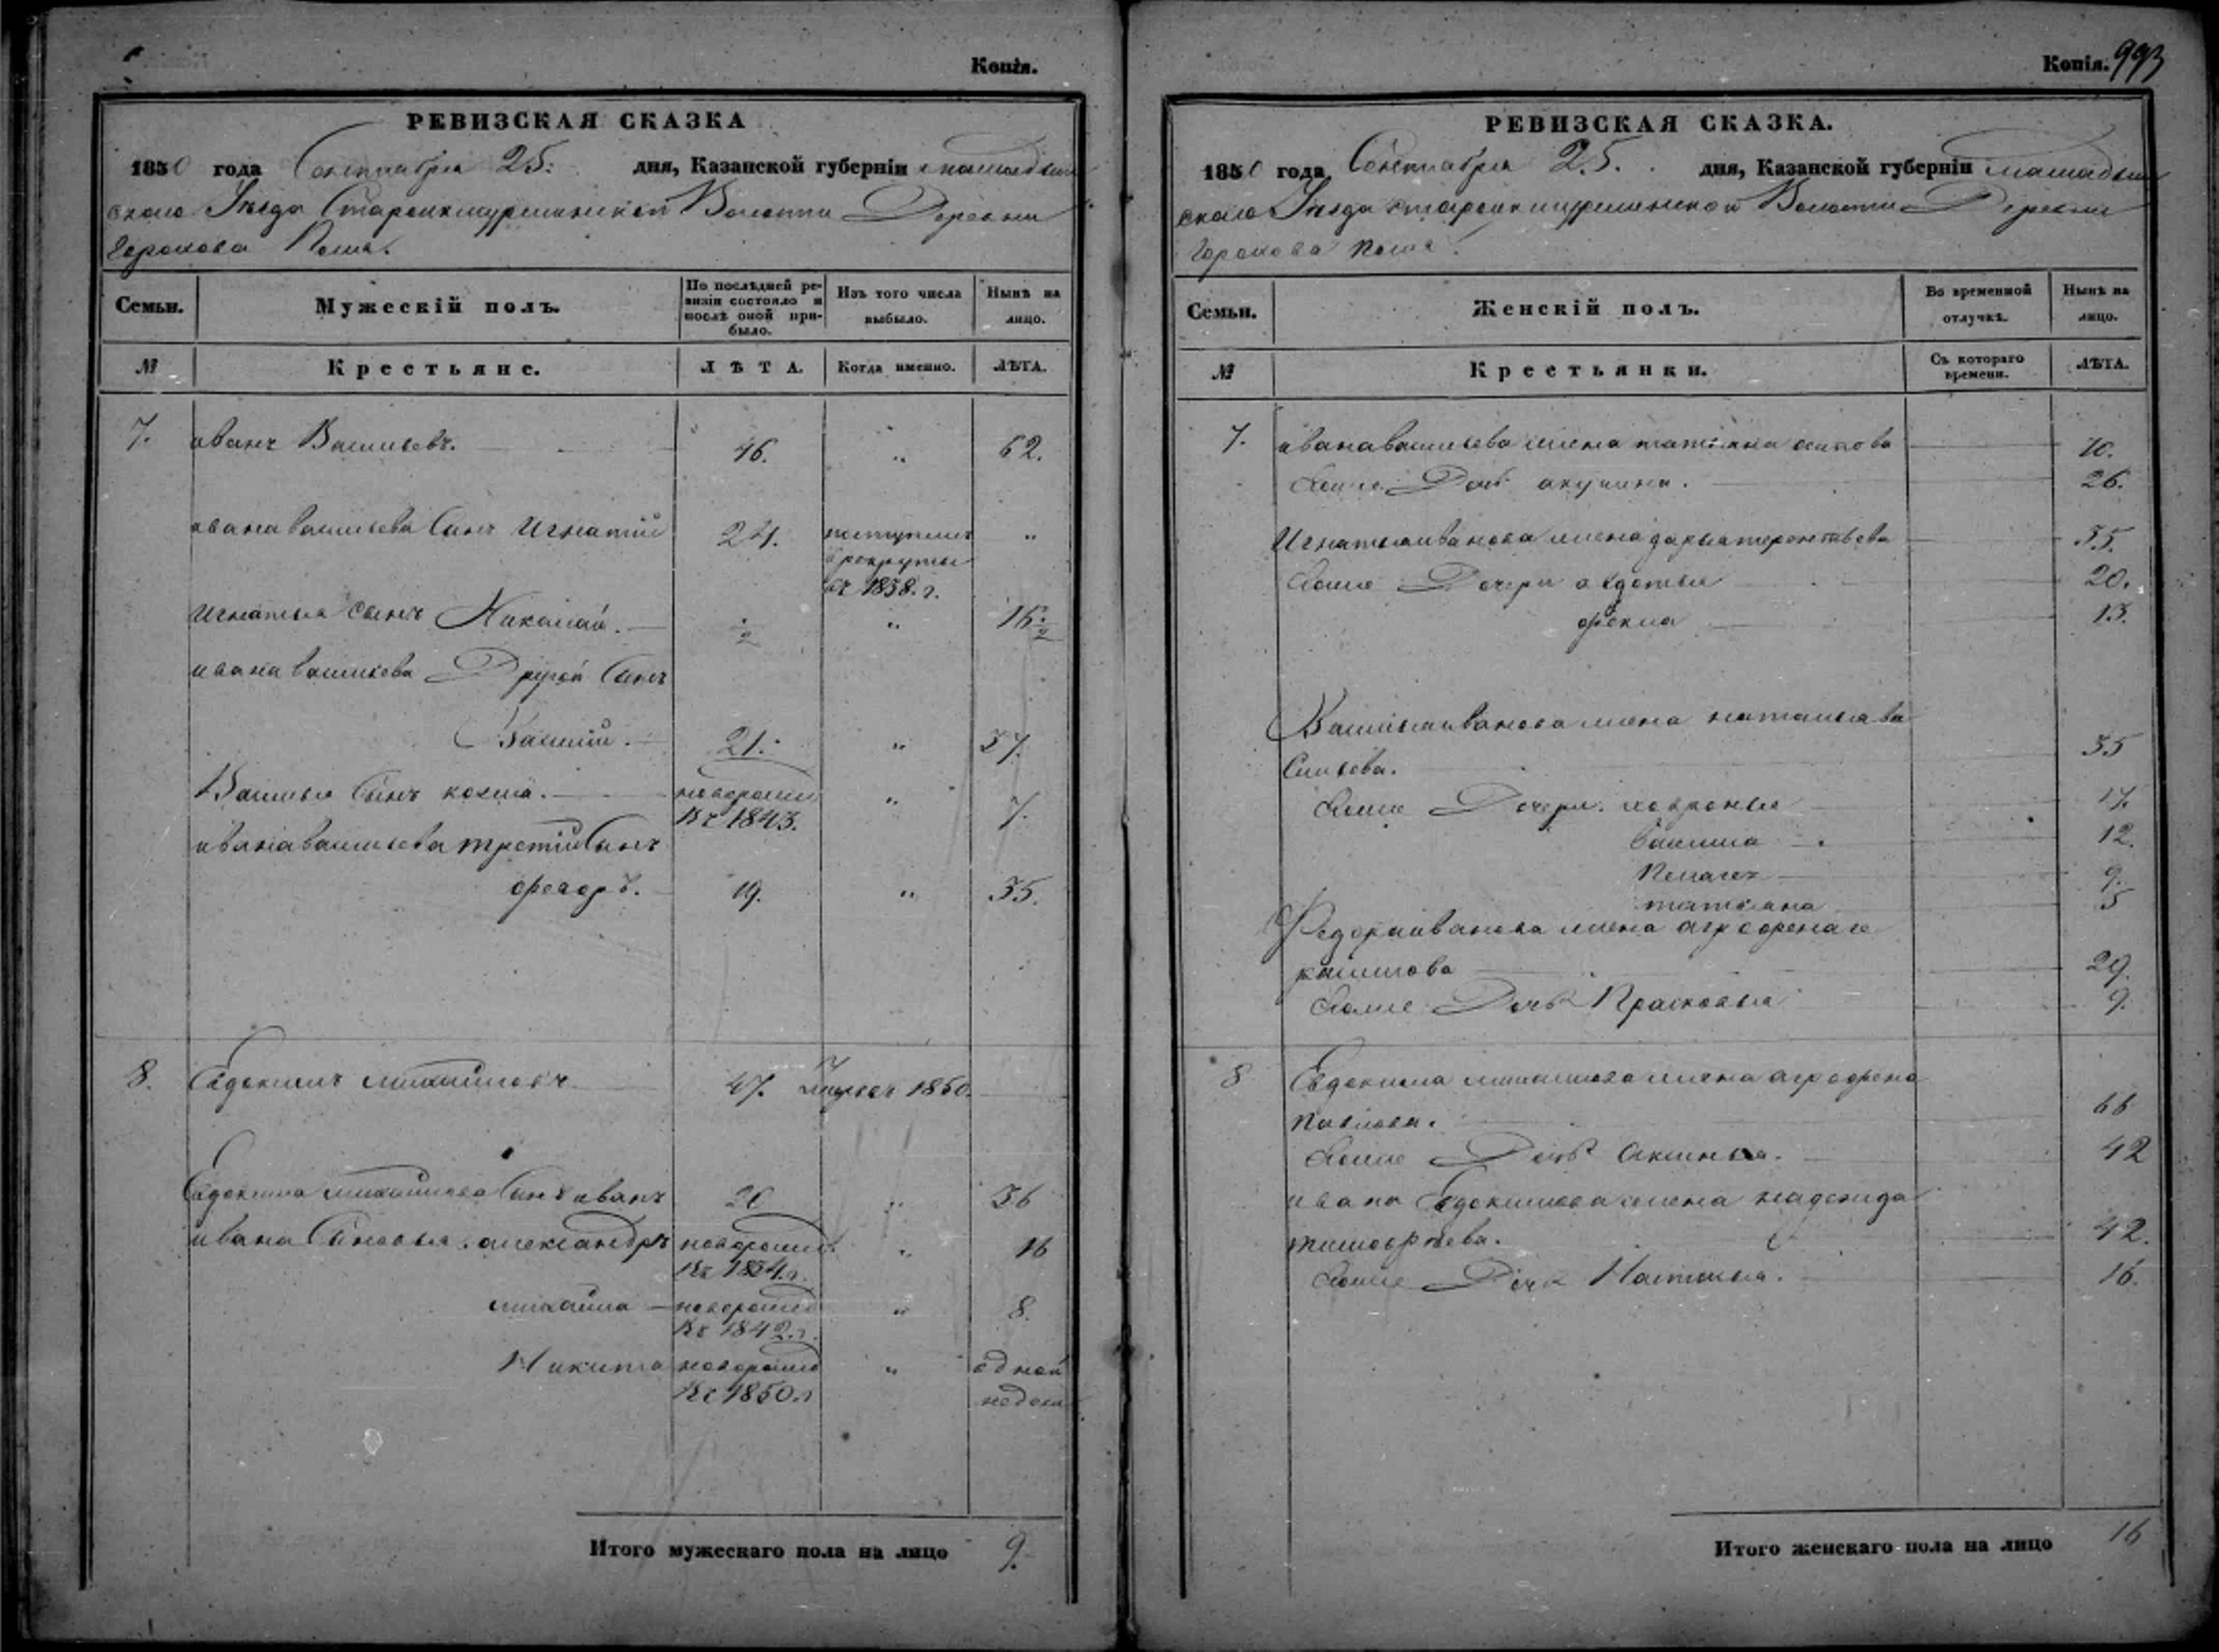 Копія.
РЕВИЗСКАЯ СКАЗКА
1850 года Сентября 25. дня, Казанской губерніи
скаго Уѣзда Волости Деревни
Горохова Поля.
Семьи.
Мужескій полъ.
По послѣдней ре-
визіи состояло и
послѣ оной при-
было.
Изъ того числа
выбыло.
Нынѣ на
лицо.
№
Крестьяне.
ЛѢТА.
Когда именно.
ЛѢТА.
7. иванъ Васильевъ. 46. " 62.
ивана васильева Сынъ Игнатій 24. поступилъ "
в рекруты
въ 1838. г.
игнатья сынъ Николай. ½ " 16½
ивана васильева Другой Сынъ
Василій. 21. " 37.
Василья Сынъ козма. новорожд " 7.
въ 1843.
ивана васильева третій Сынъ
федоръ. 19. " 35.
8. Евдокимъ михайловъ 47. 1850.
Евдокима михайлова Сынъ иванъ 20 " 36
ивана Сыновья александръ новорожд. " 16
въ 1834. г.
михайла новорожд " 8.
въ 1842. г.
Никита новорожд " одной
въ 1850. г недели
Итого мужескаго пола на лицо 9.
Копія. 993
РЕВИЗСКАЯ СКАЗКА.
1850 года Сентября 25. дня, Казанской губерніи
скаго Уѣзда Волости Деревни
Горохова поля.
Семьи.
Женскій полъ.
Во временной
отлучкѣ.
Нынѣ на
лицо.
№
Крестьянки.
Съ котораго
времени.
ЛѢТА.
7. ивана васильева жена татьяна осипова 70.
Ихже Дочь акулина. 26.
Игнатья иванова жена дарья терентьева 35.
Ихже Дочери авдотья 20.
фекла 13.
Василья иванова жена наталья ва
сильева. 35
Ихже Дочери. ховронья 17.
12.
Пелагея 9.
татьяна 5
Федора иванова жена аграфена ге
расимова 29.
Ихже Дочь Прасковья 9.
8 Евдокима михайлова жена аграфена
павлова. 66
Ихже Дочь Аксинья. 42
ивана Евдокимова жена надежда
тимофеева. 42.
Ихже Дочь Наталья. 16.
Итого женскаго пола на лицо 16